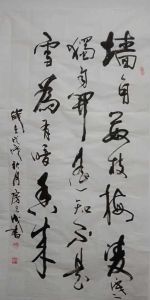 墙角数枝梅凌寒
獨自開遥知不是
雪為有暗香来
戊戌秋月書